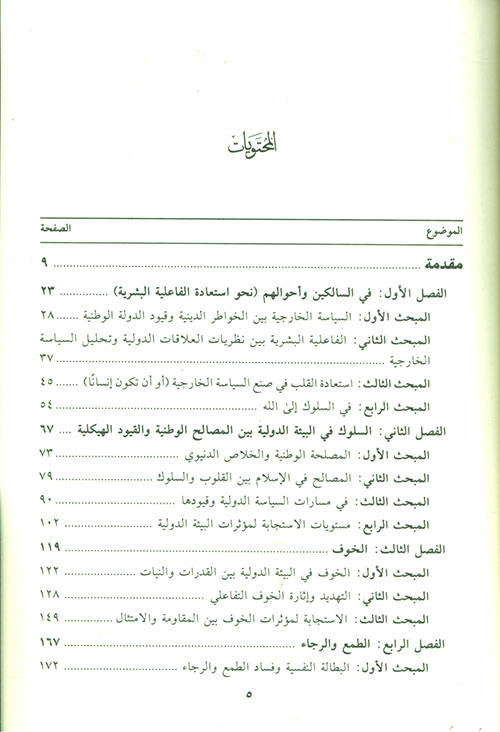 المحتويات
الموضوع الصفحة
مقدمة ٩
الفصل الأول: في السالكين وأحوالهم (نحو استعادة الفاعلية البشرية) ٢٣
المبحث الأول: السياسة الخارجية بين الخواطر الدينية وقيود الدولة الوطنية ٢٨
المبحث الثاني: الفاعلية البشرية بين نظريات العلاقات الدولية وتحليل السياسة
الخارجية ٣٧
المبحث الثالث: استعادة القلب في صنع السياسة الخارجية (أو أن تكون إنسانًا) ٤٥
المبحث الرابع: في السلوك إلى الله ٥٤
الفصل الثاني: السلوك في البيئة الدولية بين المصالح الوطنية والقيود الهيكلية ٦٧
المبحث الأول: المصلحة الوطنية والخلاص الدنيوي ٧٣
المبحث الثاني: المصالح في الإسلام بين القلوب والسلوك ٧٩
المبحث الثالث: في مسارات السياسة الدولية وقيودها ٩٠
المبحث الرابع: مستويات الاستجابة لمؤثرات البيئة الدولية ١٠٢
الفصل الثالث: الخوف ١١٩
المبحث الأول: الخوف في البيئة الدولية بين القدرات والنيات ١٢٢
المبحث الثاني: التهديد وإثارة الخوف التفاعلي ١٢٨
المبحث الثالث: الاستجابة لمؤثرات الخوف بين المقاومة والامتثال ١٤٩
الفصل الرابع: الطمع والرجاء ١٦٧
المبحث الأول: البطالة النفسية وفساد الطمع والرجاء ١٧٢
٥